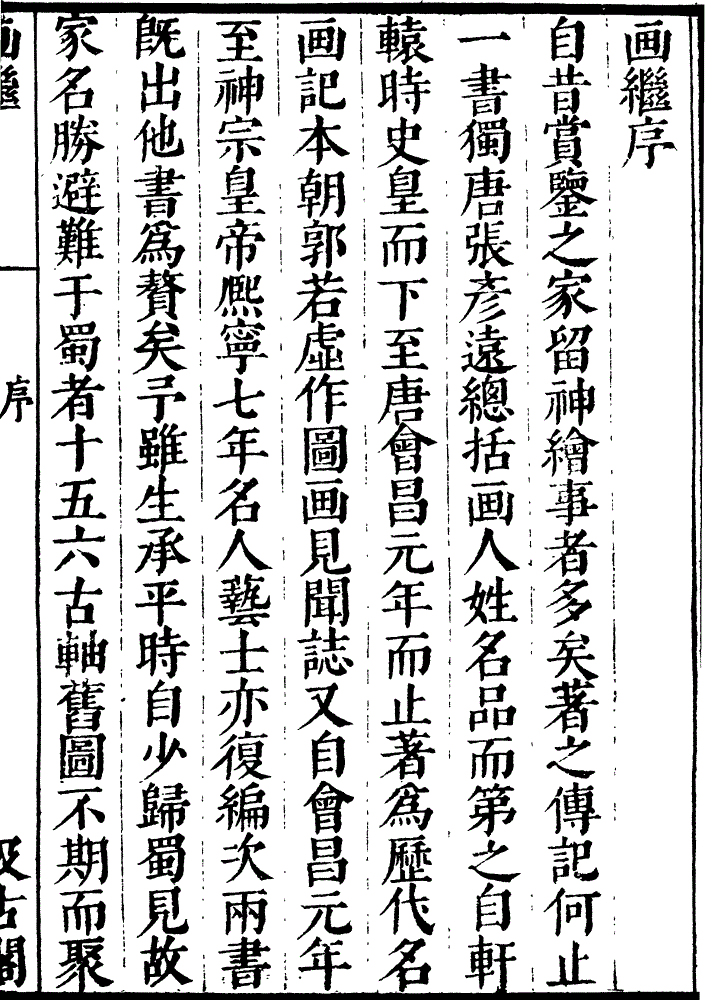 画繼序
自昔賞鑒之家留神繪事者多矣著之傳記何止
一書獨唐張彥遠總括画人姓名品而第之自軒
轅時史皇而下至唐會昌元年而止著爲歷代名
画記本朝郭若虛作圖画見聞誌又自會昌元年
至神宗皇帝熈寧七年名人藝士亦復編次兩書
旣出他書爲贅矣予雖生承平時自少歸蜀見故
家名勝避難于蜀者十五六古軸舊圖不期而聚
画繼
序
汲古閣